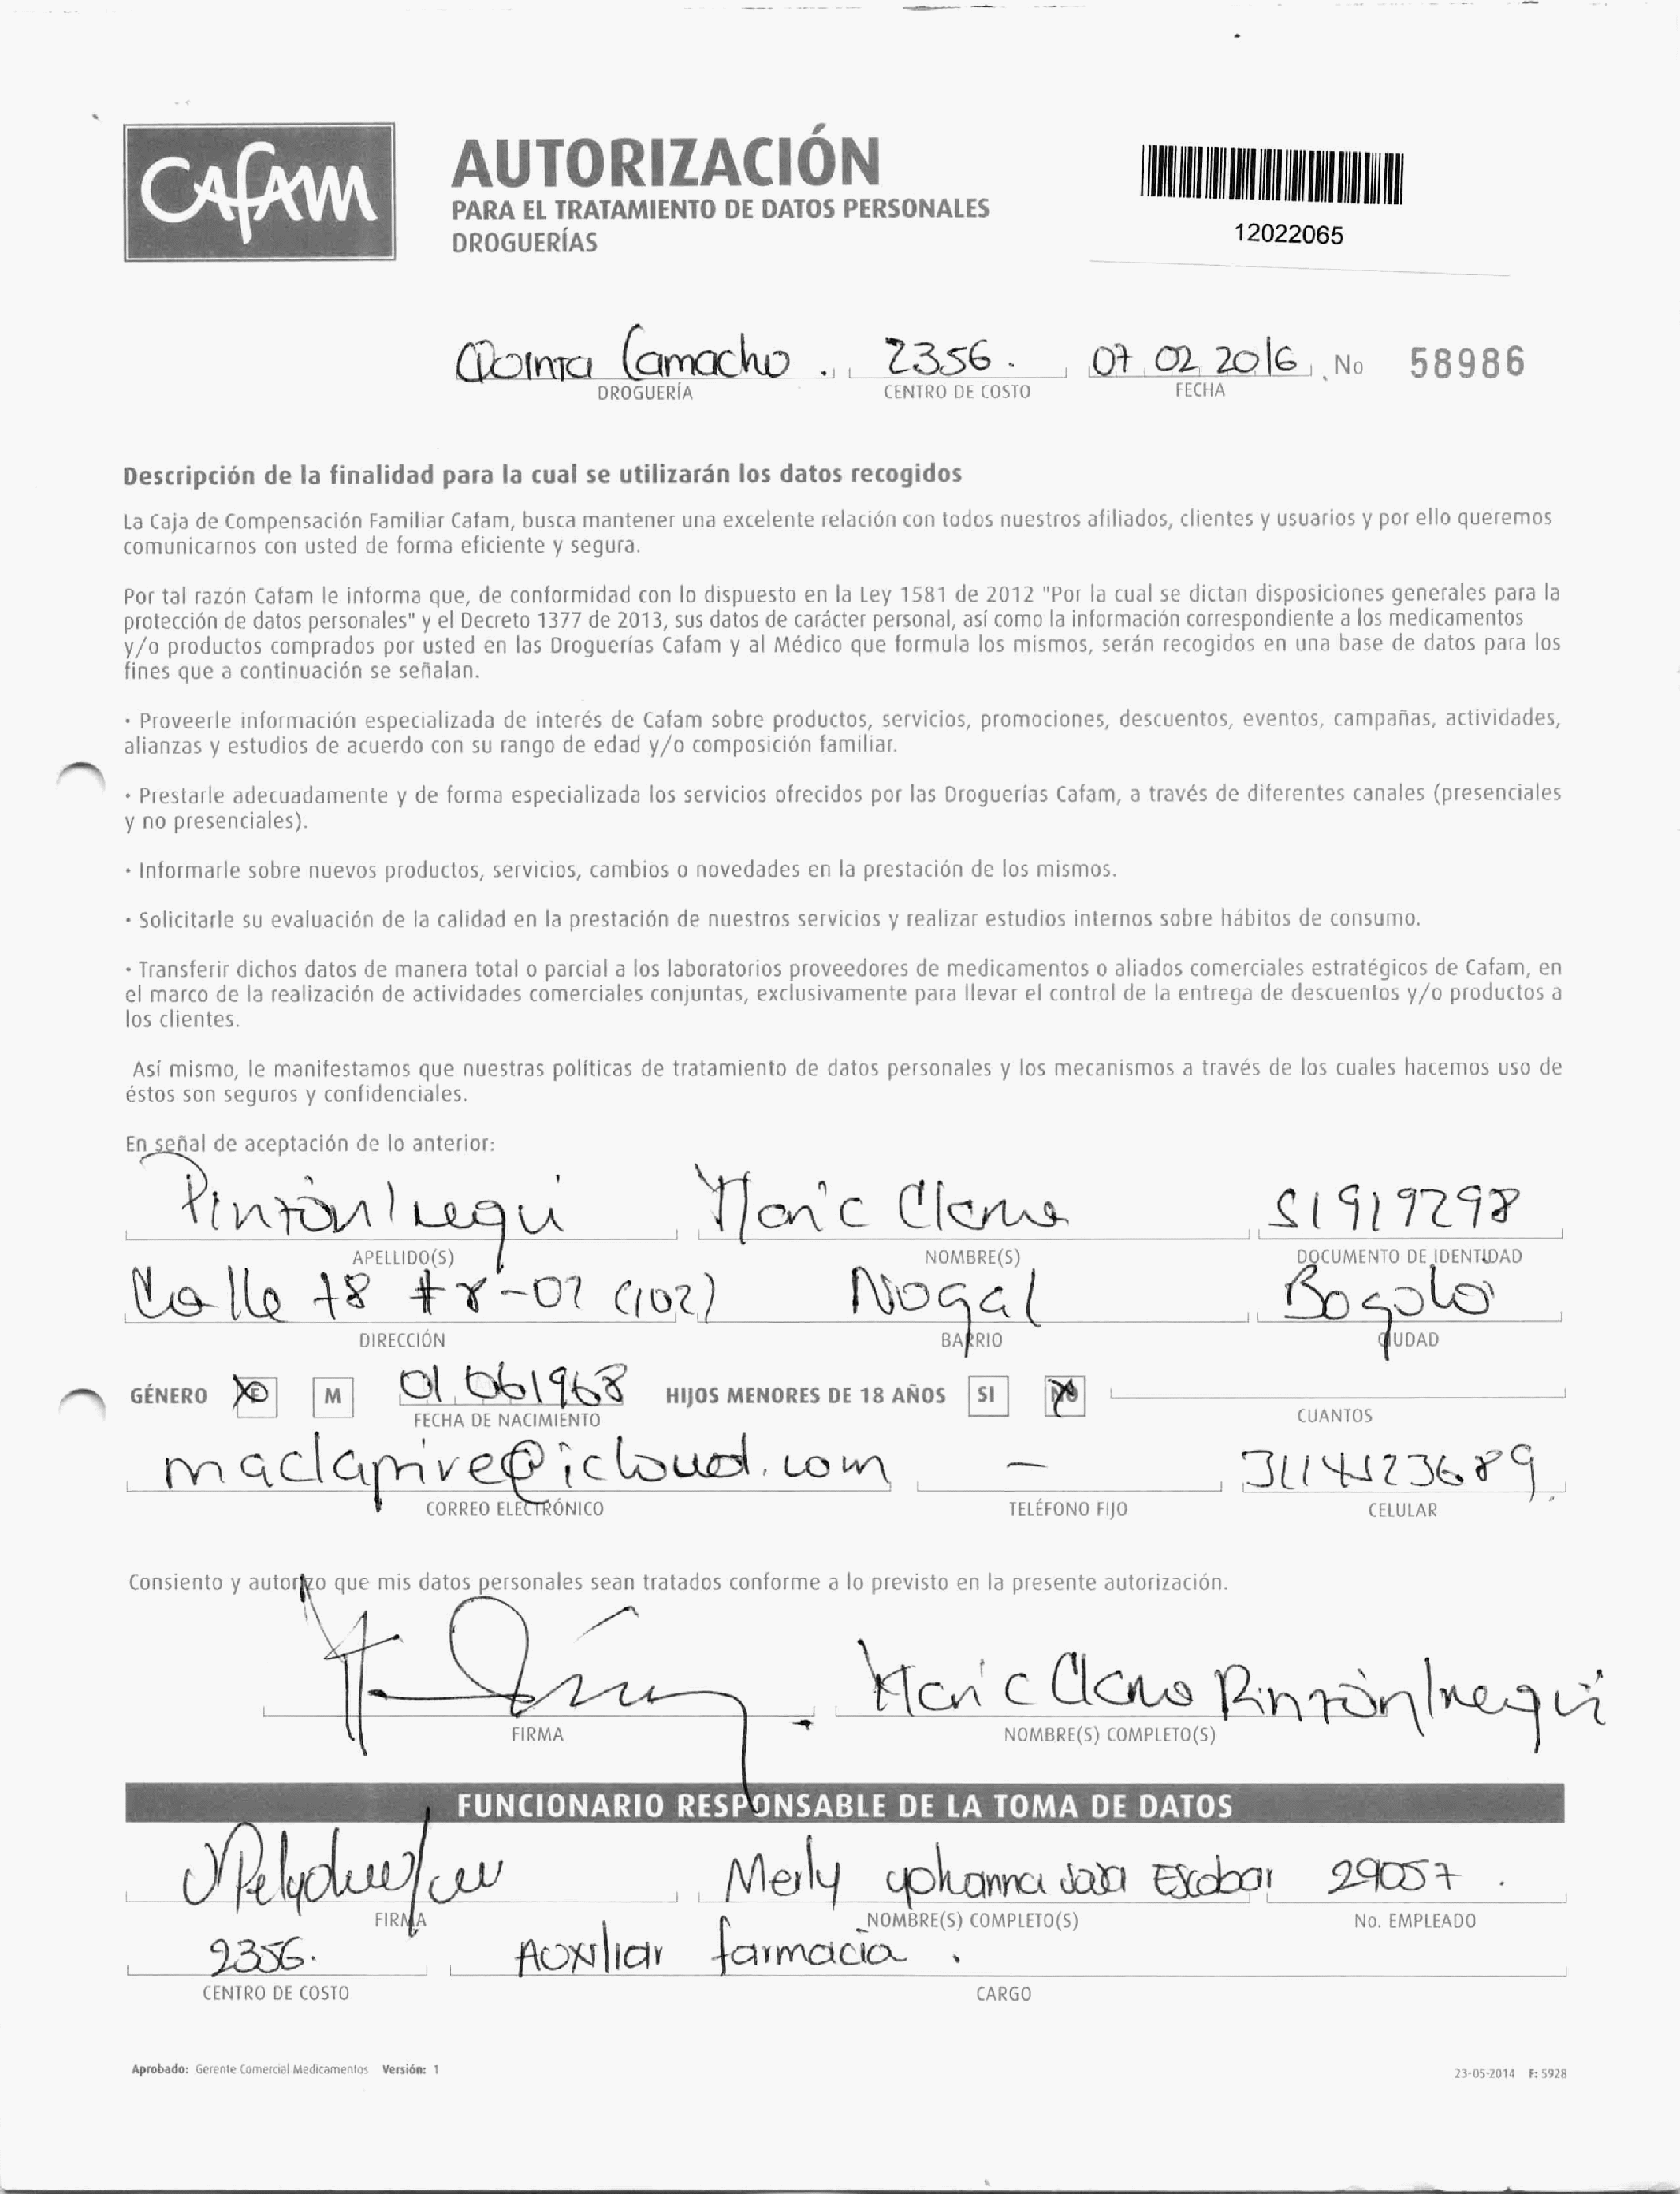 CAFAM
AUTORIZACIÓN
PARA EL TRATAMIENTO DE DATOS PERSONALES
DROGUERÍAS
12022065
Quinta Camacho . 2356 . 07 02 2016 No 58986
DROGUERÍA CENTRO DE COSTO FECHA
Descripción de la finalidad para la cual se utilizarán los datos recogidos
La Caja de Compensación Familiar Cafam, busca mantener una excelente relación con todos nuestros afiliados, clientes y usuarios y por ello queremos
comunicarnos con usted de forma eficiente y segura.
Por tal razón Cafam le informa que, de conformidad con lo dispuesto en la Ley 1581 de 2012 "Por la cual se dictan disposiciones generales para la
protección de datos personales" y el Decreto 1377 de 2013, sus datos de carácter personal, así como la información correspondiente a los medicamentos
y/o productos comprados por usted en las Droguerías Cafam y al Médico que formula los mismos, serán recogidos en una base de datos para los
fines que a continuación se señalan.
· Proveerle información especializada de interés de Cafam sobre productos, servicios, promociones, descuentos, eventos, campañas, actividades,
alianzas y estudios de acuerdo con su rango de edad y/o composición familiar.
· Prestarle adecuadamente y de forma especializada los servicios ofrecidos por las Droguerías Cafam, a través de diferentes canales (presenciales
y no presenciales).
· Informarle sobre nuevos productos, servicios, cambios o novedades en la prestación de los mismos.
· Solicitarle su evaluación de la calidad en la prestación de nuestros servicios y realizar estudios internos sobre hábitos de consumo.
· Transferir dichos datos de manera total o parcial a los laboratorios proveedores de medicamentos o aliados comerciales estratégicos de Cafam, en
el marco de la realización de actividades comerciales conjuntas, exclusivamente para llevar el control de la entrega de descuentos y/o productos a
los clientes.
Así mismo, le manifestamos que nuestras políticas de tratamiento de datos personales y los mecanismos a través de los cuales hacemos uso de
éstos son seguros y confidenciales.
En señal de aceptación de lo anterior:
Pinzón Maria Clara 51919298
APELLIDO(S) NOMBRE(S) DOCUMENTO DE IDENTIDAD
Calle 78 # 8-02 (102) Nogal Bogotá
DIRECCIÓN BARRIO CIUDAD
GÉNERO F M 01 06 1968 HIJOS MENORES DE 18 AÑOS SI NO
FECHA DE NACIMIENTO CUANTOS
maclapive@icloud.com — 3114123689
CORREO ELECTRÓNICO TELÉFONO FIJO CELULAR
Consiento y autorizo que mis datos personales sean tratados conforme a lo previsto en la presente autorización.
Maria Clara Pinzón
FIRMA NOMBRE(S) COMPLETO(S)
FUNCIONARIO RESPONSABLE DE LA TOMA DE DATOS
Merly yohanna Escobar 29057 .
FIRMA NOMBRE(S) COMPLETO(S) No. EMPLEADO
2356. Auxiliar farmacia .
CENTRO DE COSTO CARGO
Aprobado: Gerente Comercial Medicamentos Versión: 1 23-05-2014 F: 5928